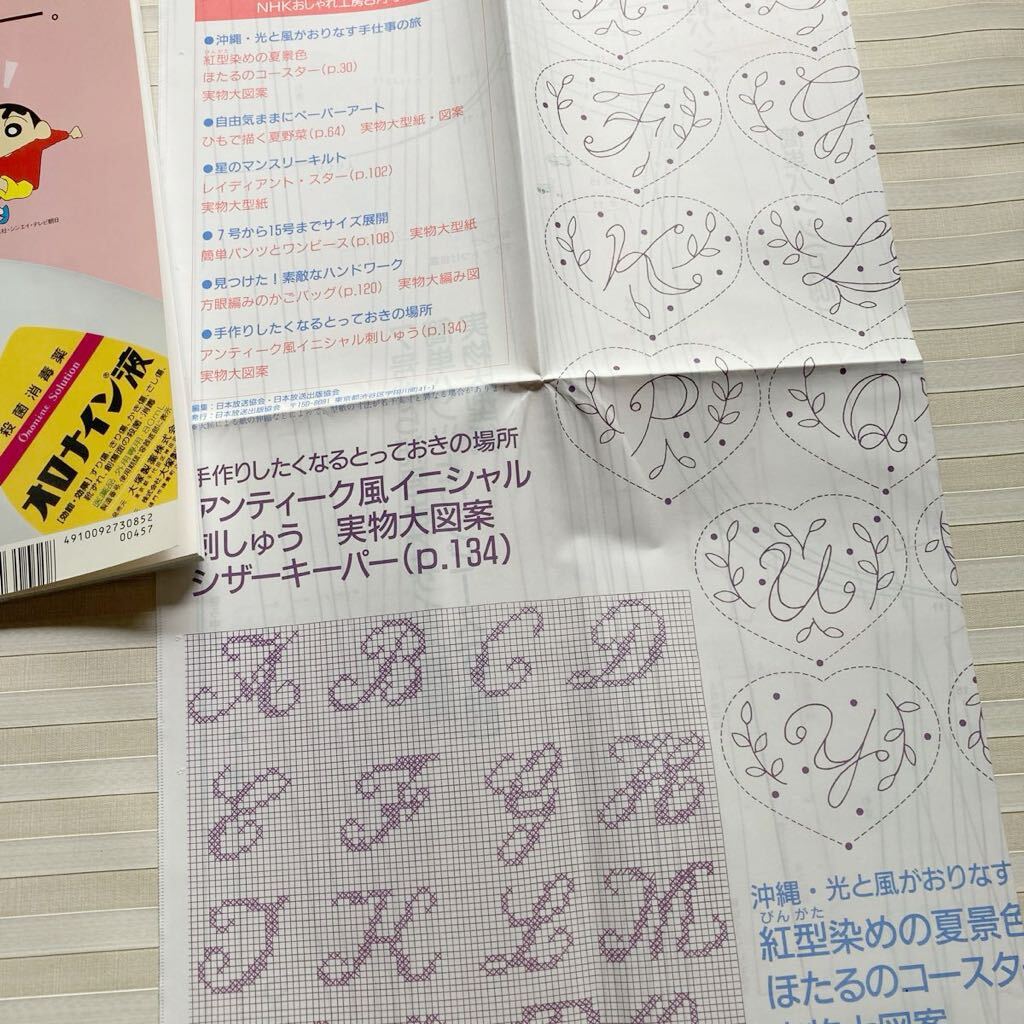 NHKおしゃれ工房
●沖縄・光と風がおりなす手仕事の旅
びんがた
紅型染めの夏景色
ほたるのコースター(p.30)
実物大図案
●自由気ままにペーパーアート
ひもで描く夏野菜(p.64) 実物大型紙・図案
●星のマンスリーキルト
レイディアント・スター(p.102)
実物大型紙
●7号から15号までサイズ展開
簡単パンツとワンピース(p.108) 実物大型紙
●見つけた!素敵なハンドワーク
方眼編みのかごバッグ(p.120) 実物大編み図
●手作りしたくなるとっておきの場所
アンティーク風イニシャル刺しゅう(p.134)
実物大図案
編集:日本放送協会・日本放送出版協会
発行:日本放送出版協会 〒150-8081 東京都渋谷区宇田川町41-1
手作りしたくなるとっておきの場所
アンティーク風イニシャル
刺しゅう 実物大図案
シザーキーパー(p.134)
A B C D
E F G H
J K L M
F G
K L
P Q
U
Y
沖縄・光と風がおりなす
びんがた
紅型染めの夏景色
ほたるのコースタ
シンエイ・テレビ朝日
殺菌消毒薬
Ononine Solution
オロナイン®液
大塚製薬株式会社
4910092730852
00457